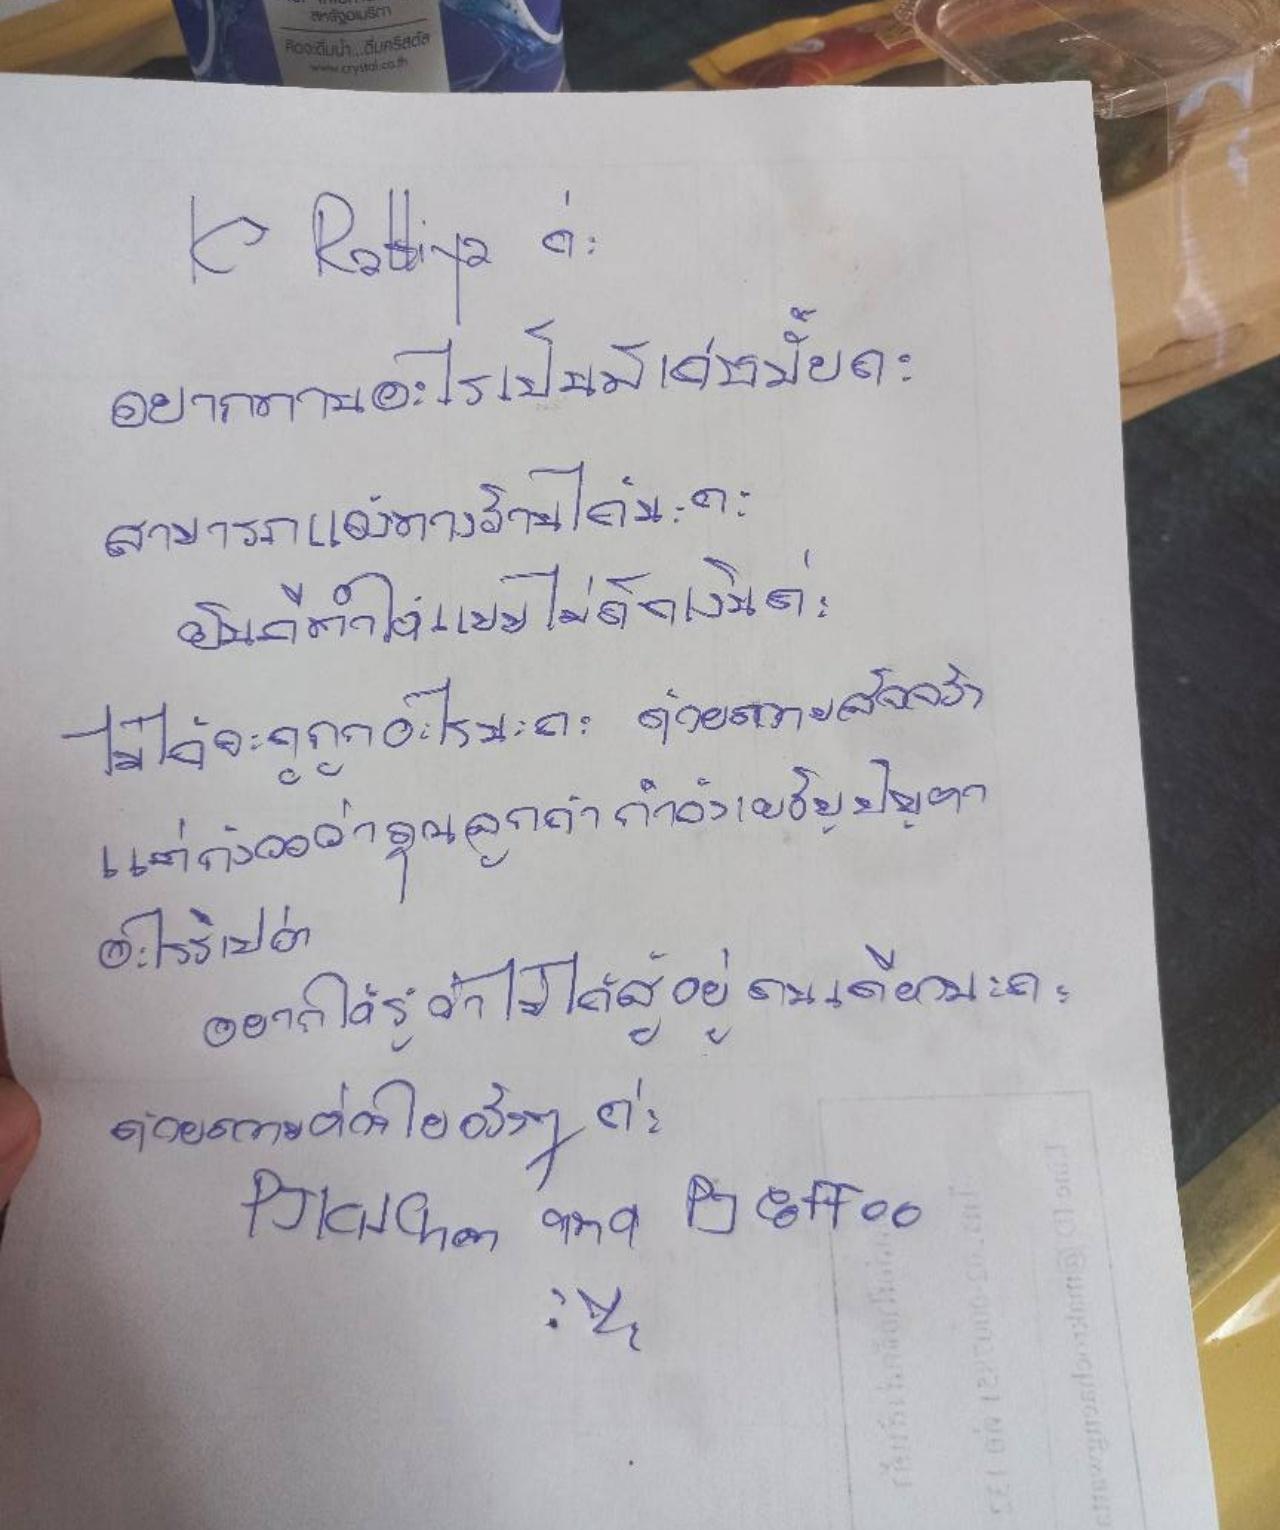 สหรัฐอเมริกา
คิดจะดื่มน้ำ...ดื่มคริสตัล
www.crystal.co.th
K Rattiya ค่ะ
อยากทานอะไรเป็นพิเศษมั้ยคะ
สามารถแจ้งทางร้านได้นะคะ
ยินดีทำให้แบบไม่คิดเงินค่ะ
ไม่ได้จะดูถูกอะไรนะคะ ด้วยความสัจจริง
แต่กังวลว่าคุณลูกค้า กำลังเผชิญปัญหา
อะไรรึเปล่า
อยากให้รู้ว่าไม่ได้สู้อยู่ คนเดียวนะคะ
ด้วยความห่วงใยจริงๆ ค่ะ
PJ Kitchen and PJ Coffee